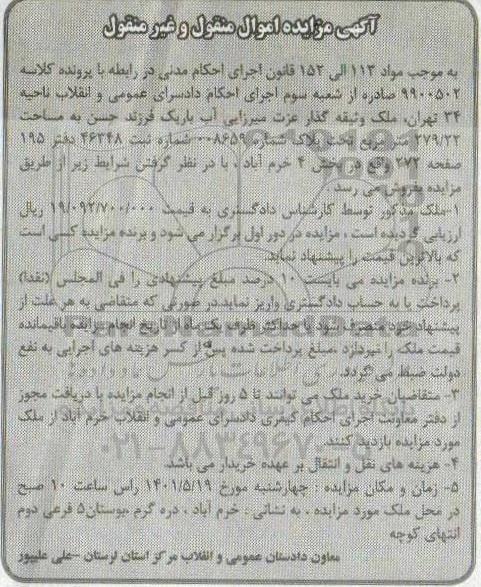 آگهی مزایده اموال منقول و غیر منقول
به موجب مواد ۱۱۳ الی ۱۵۳ قانون اجرای احکام مدنی در رابطه با پرونده کلاسه
۹۹۰۰۵۰۲ صادره از شعبه سوم اجرای احکام دادسرای عمومی و انقلاب ناحیه
۳۴ تهران، ملک وثیقه گذار عزت میرزایی آب باریک فرزند حسن به مساحت
۲۷۹/۲۲ متر مربع تحت پلاک شماره ۰۰۸۶۵۹ شماره ثبت ۴۶۳۴۸ دفتر ۱۹۵
صفحه ۲۷۲ واقع در بخش ۴ خرم آباد ، با در نظر گرفتن شرایط زیر از طریق
مزایده بفروش می رسد .
۱-ملک مذکور توسط کارشناس دادگستری به قیمت ۱۹/۰۹۲/۷۰۰/۰۰۰ ریال
ارزیابی گردیده است ، مزایده در دور اول برگزار می شود و برنده مزایده کسی است
که بالاترین قیمت را پیشنهاد نماید.
۲- برنده مزایده می بایست ۱۰ درصد مبلغ پیشنهادی را فی المجلس (نقدا)
پرداخت یا به حساب دادگستری واریز نماید.در صورتی که متقاضی به هر علت از
پیشنهاد خود منصرف شود یا حداکثر ظرف یک ماه از تاریخ انجام مزایده باقیمانده
قیمت ملک را نپردازد ،مبلغ پرداخت شده پس از کسر هزینه های اجرایی به نفع
دولت ضبط می گردد.
۳- متقاضیان خرید ملک می توانند تا ۵ روز قبل از انجام مزایده با دریافت مجوز
از دفتر معاونت اجرای احکام کیفری دادسرای عمومی و انقلاب خرم آباد از ملک
مورد مزایده بازدید کنند.
۴- هزینه های نقل و انتقال بر عهده خریدار می باشد.
۵- زمان و مکان مزایده : چهارشنبه مورخ ۱۴۰۱/۵/۱۹ راس ساعت ۱۰ صبح
در محل ملک مورد مزایده ، به نشانی : خرم آباد ، دره گرم ،بوستان۵ فرعی دوم
انتهای کوچه
معاون دادستان عمومی و انقلاب مرکز استان لرستان -علی علیپور
۰۲۱-۸۸۳۴۹۶۷۰-۵